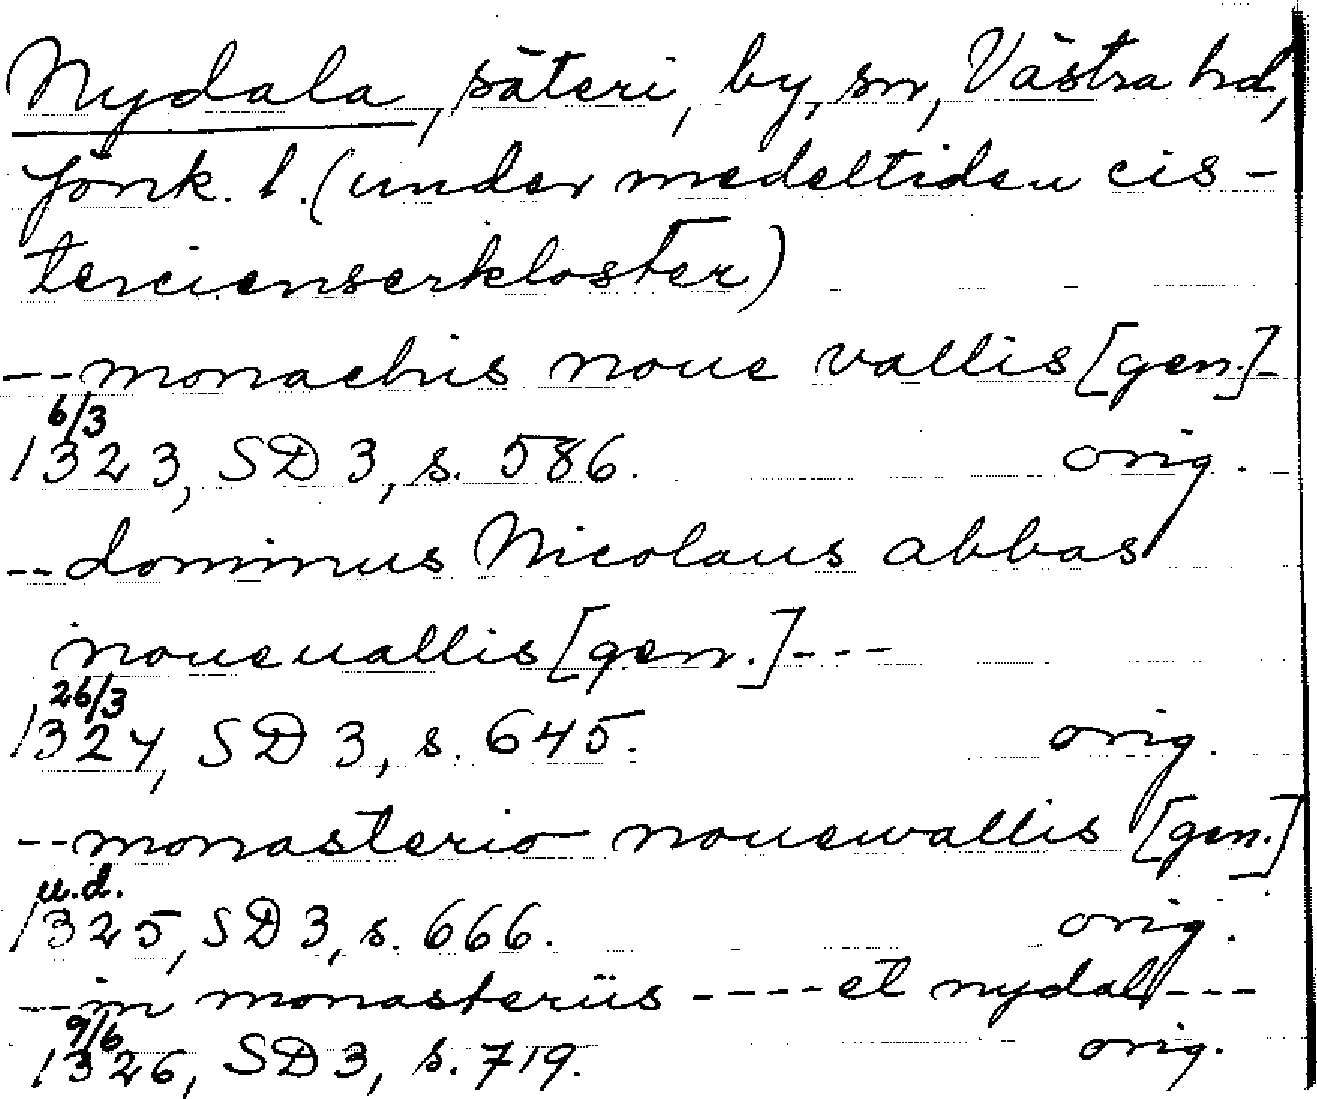 Nydala, säteri, by, sn, Västra hd,
Jönk. l. (under medeltiden cis-
tercienserkloster)
--monachis noue vallis [gen.]-
6/3
1323, SD 3, s. 586. orig.
--dominus Nicolaus abbas
noueuallis [gen.]---
26/3
1324, SD 3, s. 645. orig.
--monasterio nouewallis [gen.]
u.d.
1325, SD 3, s. 666. orig.
--in monasteriis ----et nydal---
9/6
1326, SD 3, s. 719. orig.